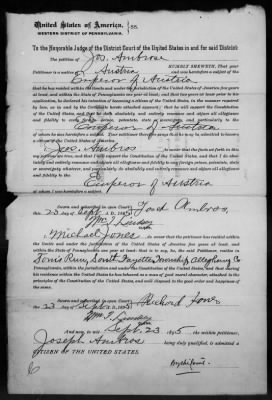 United States of America,
WESTERN DISTRICT OF PENNSYLVANIA. } ss.
To the Honorable Judge of the District Court of the United States in and for said District:
The petition of Jos. Ambrose HUMBLY SHEWETH, That your
Petitioner is a native of Austria and was heretofore a subject of the
Emperor of Austria
that he has resided within the limits and under the jurisdiction of the United States of America five years
at least, and within the State of Pennsylvania one year at least, and that two years at least prior to his
application, he declared his intention of becoming a citizen of the United States, in the manner required
by law, as is by the Certificate hereto attached; that he will support the Constitution
of the United States, and that he doth absolutely and entirely renounce and abjure all allegiance
and fidelity to every foreign prince, potentate, state or sovereignty, and particularly to the
Emperor of Austria
of whom he was heretofore a subject. Your Petitioner therefore prays that he may be admitted to become
a citizen of the United States.
I, Jos. Ambros do swear that the facts set forth in this
my petition are true, and that I will support the Constitution of the United States, and that I do absolutely
and entirely renounce and abjure all allegiance and fidelity to any foreign prince, potentate, state
or sovereignty whatever, and particularly to the
Emperor of Austria
of whom I was heretofore a subject.
Sworn and subscribed in open Court this
23 day of Sept A. D. 1895
Josef Ambros,
Wm T. Lindsey
I, Michael Jones being sworn that the petitioner has resided within the
limits and under the jurisdiction of the United States five years at least, and within
the State of Pennsylvania one year at least,
Toms Run, South Fayette Township, Allegheny Co
Pennsylvania, within the jurisdiction and under the Constitution of the United States, and that during
his residence within the United States he has behaved as a man of good moral character, attached to the
principles of the Constitution of the United States, and well disposed to the good order and happiness of
the same.
Sworn and subscribed in open Court this
23 day of Sept A. D. 1895
Wm T. Lindsey
And now, to wit: Sept. 23 1895, the within petitioner,
Joseph Ambrose being duly qualified, is admitted a
CITIZEN OF THE UNITED STATES.
By the Court.